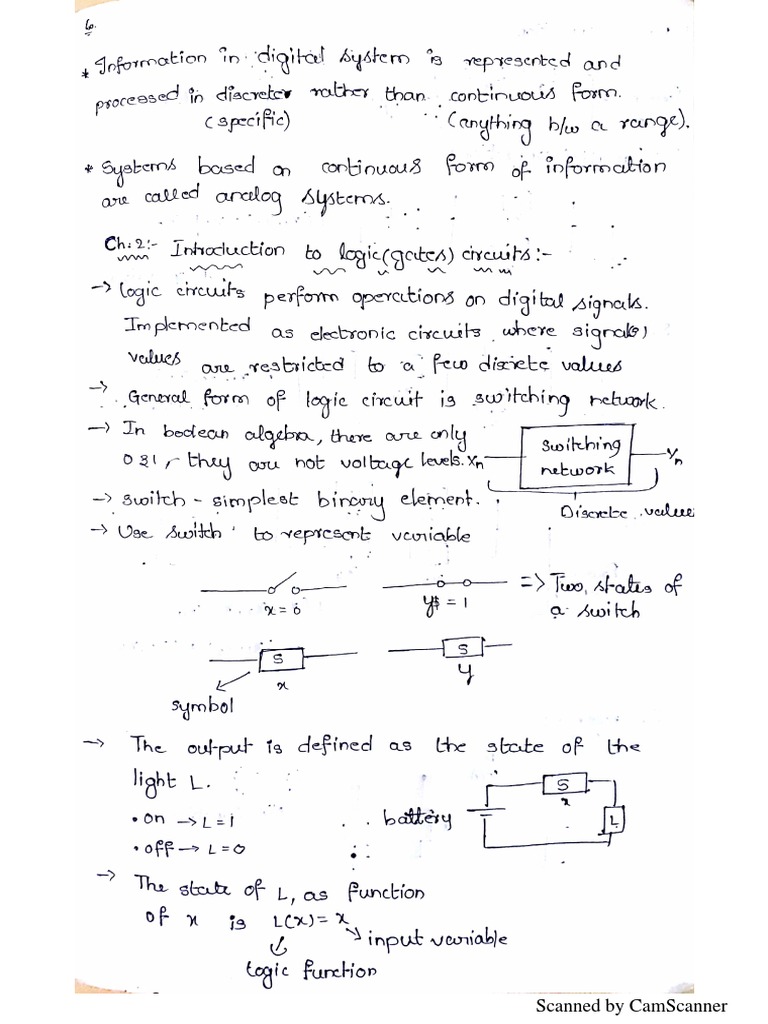 6.
* Information in digital system is represented and
processed in discreter rather than continuous form.
(specific) (anything b/w a range).
* Systems based on continuous form of information
are called analog systems.
Ch:2:- Introduction to logic(gates) circuits:-
→ logic circuits perform operations on digital signals.
Implemented as electronic circuits where signals,
values are restricted to a few discrete values
→ General form of logic circuit is switching network.
→ In boolean algebra, there are only
0 & 1, they are not voltage levels.
Xn switching network Yn
→ switch - simplest binary element.
Discrete values
→ Use switch to represent variable
x = 0 y = 1 => Two states of
a switch
S S
x y
symbol
→ The output is defined as the state of the
light L.
S
x
• on → L = 1 battery L
• off → L = 0
→ The state of L, as function
of x is L(x) = x
input variable
logic function
Scanned by CamScanner